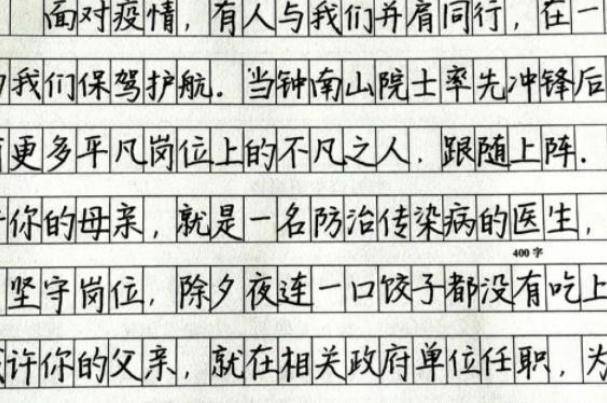 面对疫情，有人与我们并肩同行，在一
我们保驾护航．当钟南山院士率先冲锋后
更多平凡岗位上的不凡之人．跟随上阵．
你的母亲，就是一名防治传染病的医生，
400字
坚守岗位，除夕夜连一口饺子都没有吃上
许你的父亲，就在相关政府单位任职，为